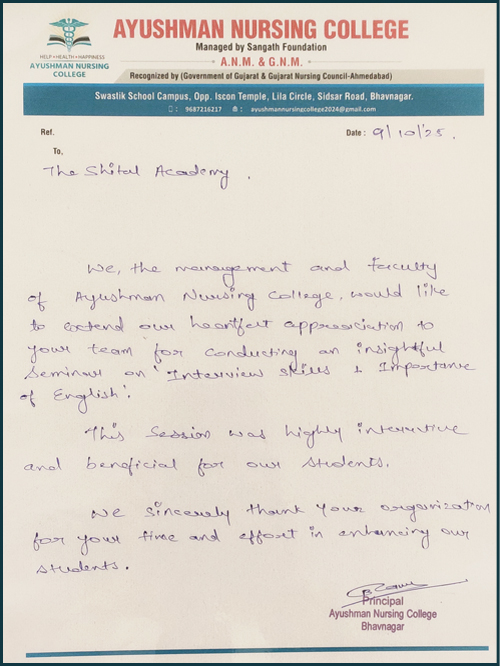 AYUSHMAN NURSING COLLEGE
Managed by Sangath Foundation
A.N.M. & G.N.M.
HELP • HEALTH • HAPPINESS
AYUSHMAN NURSING
COLLEGE
Recognized by (Government of Gujarat & Gujarat Nursing Council-Ahmedabad)
Swastik School Campus, Opp. Iscon Temple, Lila Circle, Sidsar Road, Bhavnagar.
: 9687216217 : ayushmannursingcollege2024@gmail.com
Ref. Date : 9/10/25.
To,
The Shital Academy.
We, the management and faculty
of Ayushman Nursing College, would like
to extend our heartfelt appreciation to
your team for conducting an insightful
Seminar on 'Interview skills & Importance
of English'.
This Session was highly interactive
and beneficial for our students.
We sincerely thank your organization
for your time and effort in enhancing our
students.
Principal
Ayushman Nursing College
Bhavnagar